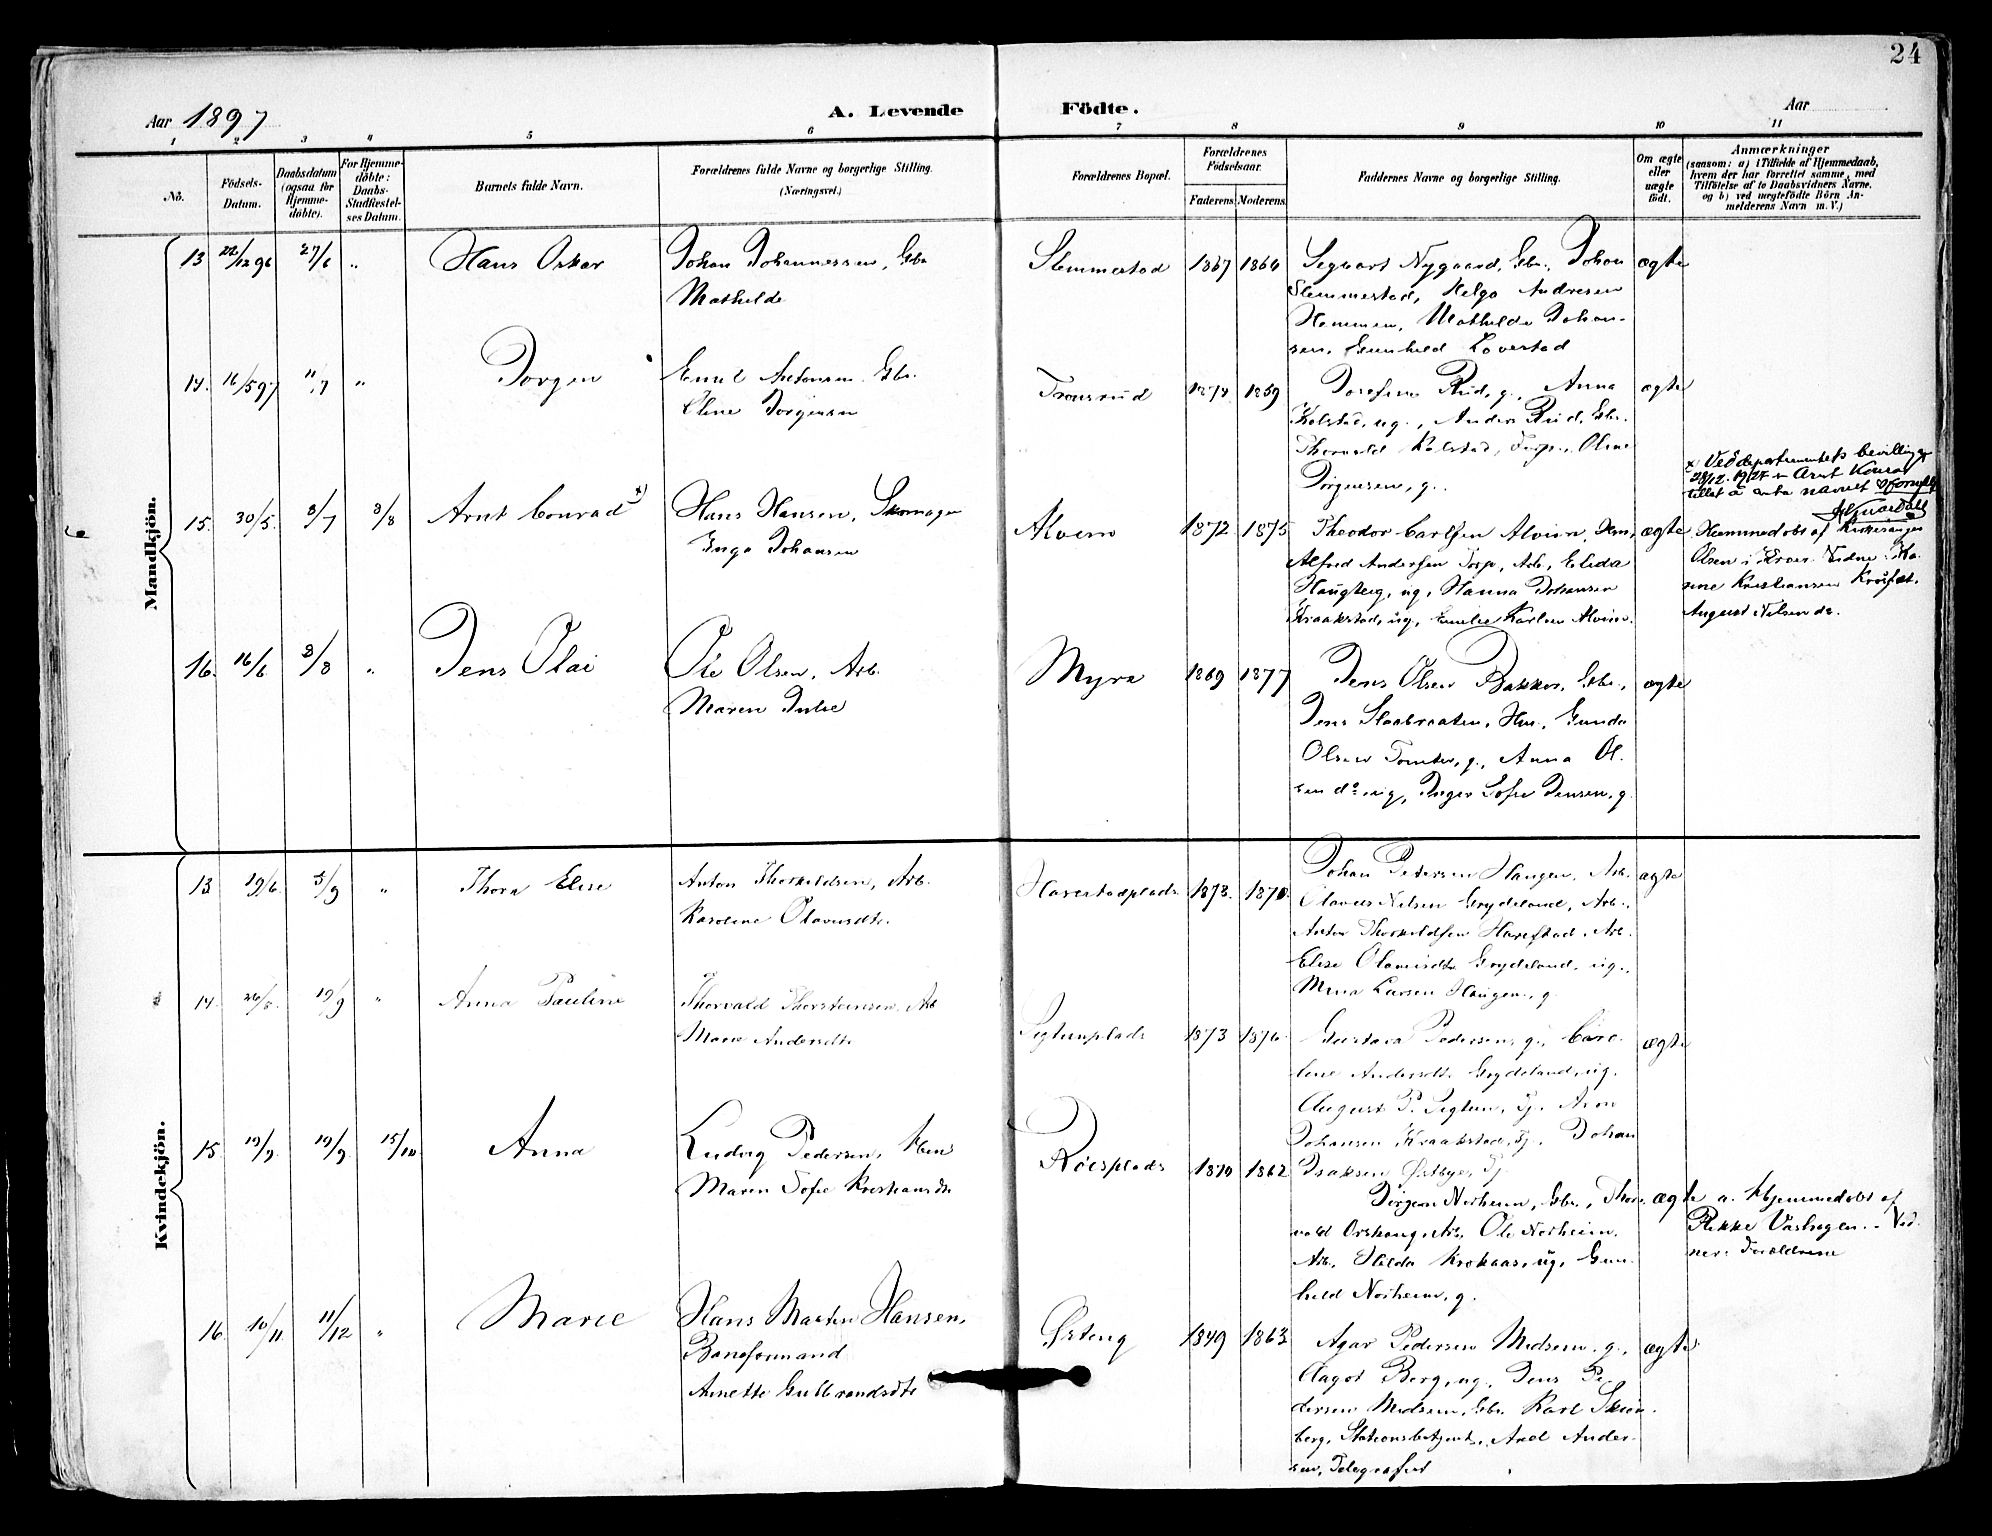 24
Aar 1897
A. Levende
Födte.
Aar
1 2 3 4 5 6 7 8 9 10 11
No.
Födsels-
Datum.
Daabsdatum
(ogsaa for
Hjemme-
döbte).
For Hjemme-
döbte:
Daabs-
Stadfæstel-
ses Datum.
Barnets fulde Navn.
Forældrenes fulde Navne og borgerlige Stilling.
(Næringsvei.)
Forældrenes Bopæl.
Forældrenes
Födselsaar.
Faderens. Moderens.
Faddernes Navne og borgerlige Stilling.
Om ægte
eller
uægte
födt.
Anmærkninger
(saasom: a) i Tilfælde af Hjemmedaab,
hvem der har forrettet samme, med
Tilföielse af to Daabsvidners Navne,
og b) ved uægtefödte Börn An-
melderens Navn m. V.)
Mandkjön.
13 22/12 96 27/6 " Hans Oskar Johan Johannessen, Gbr.
Mathilde
Slemmestad 1867 1866 Segvart Nygaard, Gbr., Johan ægte
Slemmestad, Helga Andresen
Hammen, Mathilde Johan-
sen, Gunhild Lovestad
14. 16/5 97 11/7 " Jorgen Emil Antonsen Gbr.
Oline Jorgensen
Tronsrud 1874 1859 Josefine Rud, g., Anna ægte
Kolstad, ug., Anders Rud, Gbr.
Thorvald Kolstad, Torp, Oline
Jörgensen, g.
15. 30/5. 3/7 8/8 Arnt Conrad x) Hans Hansen, Skomager
Inga Johansen
Alvim 1872 1875 Theodor Carlsen Alvim, Hm, ægte
Alfred Andersen Torp, Arb., Elida
Haugberg, ug., Hanna Johansen
Kraakstad, ug, Emilie Karlsen Alvim.
x Ved departementets bevilling af
28/12. 1927 er Arnt Konrad
tillat å anta navnet
Hjemmedøbt af
Olsen i Kroer. Vidne: Ka-
rine Kristiansen
August Nilsen do.
16. 16/6 8/8 " Jens Olai Ole Olsen, Arb.
Maren Julie
Myra 1869 1877 Jens Olsen Bakker, Gbr., ægte
Jens Slaabraaten, Hm., Gunda
Olsen Tomter, g., Anna Ol-
sen do ug, Inger Sofie Jensen, g.
Kvindekjön.
13 19/6. 5/9 " Thora Elise Anton Thorkildsen, Arb.
Karoline Olavusdtr.
Harestadplads 1873. 1870. Johan Pedersen Haugen, Arb. ægte
Olavus Nilsen Grydeland, Arb.,
Anton Thorkildsen Harestad, Arb.
Elise Olavusdtr Grydeland, ug.,
Mina Larsen Haugen, g.
14. 26/8. 19/9 " Anna Pauline Thorvald Thorsteinsen, Arb
Marie Andersdtr
Sigtunplads 1873 1876 Gustava Pedersen, g., Caro- ægte
line Andersdtr Grydeland, ug.
August P. Sigtun, Tj., Aron
Johansen Kraakstad, Tj., Johan
Isaksen Østbye, Tj.
15. 19/9. 19/9 15/10 Anna Ludvig Pedersen, Hm
Maren Sofie Kristiansdtr
Röisplads 1870 1862
Jörgen Norheim, Gbr., Thor- ægte
vald Orshaug, Arb, Ole Norheim,
Arb, Hilda Krokaas, ug, Gun-
hild Norheim, g.
a. Hjemmedøbt af
Rikke Vashagen. - Vid-
ner: Foraldrene
16. 10/11. 11/12 " Marie Hans Martin Hansen,
Baneformand
Annette Gulbrandsdtr
Østeng 1849 1863 Agar Pedersen Midsem, g., ægte
Aagot Berg, ug, Jens Pe-
dersen Midsem, Gbr. Karl Skiin-
berg, Stationsbetjent, Axel Ander-
sen, Telegrafist